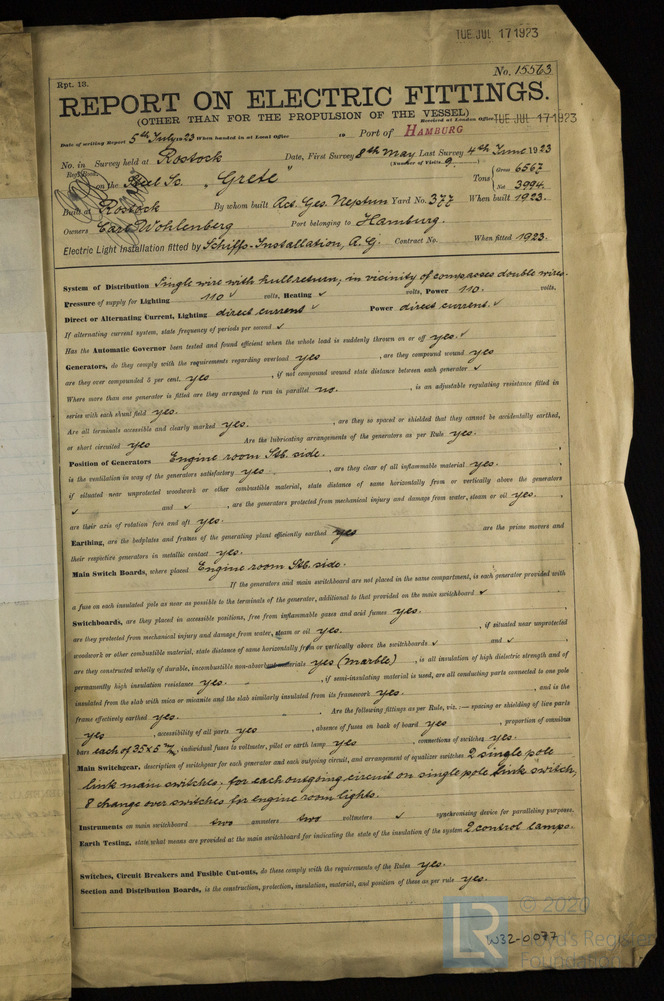 TUE. JUL 17 1923
Rpt. 13.
No. 15563
REPORT ON ELECTRIC FITTINGS.
(OTHER THAN FOR THE PROPULSION OF THE VESSEL)
Received at London Office TUE. JUL 17 1923
Date of writing Report 5th July 1923 When handed in at Local Office 19 Port of HAMBURG
No. in Survey held at Rostock Date, First Survey 8th May Last Survey 4th June 1923
Reg. Book. (Number of Visits 9.)
on the Steel Sc. "Grete" Tons { Gross 6567
Net 3994.
Built at Rostock By whom built Act. Ges. Neptun Yard No. 377 When built 1923.
Owners Carl Wohlenberg Port belonging to Hamburg.
Electric Light Installation fitted by Schiffs-Installation, A.G. Contract No. When fitted 1923.
System of Distribution Single wire with hull return, in vicinity of compasses double wires.
Pressure of supply for Lighting 110 ✓ volts, Heating ✓ volts, Power 110. volts.
Direct or Alternating Current, Lighting direct current ✓ Power direct current. ✓
If alternating current system, state frequency of periods per second ✓
Has the Automatic Governor been tested and found efficient when the whole load is suddenly thrown on or off yes. ✓
Generators, do they comply with the requirements regarding overload yes , are they compound wound yes
are they over compounded 5 per cent. yes , if not compound wound state distance between each generator ✓
Where more than one generator is fitted are they arranged to run in parallel no. , is an adjustable regulating resistance fitted in
series with each shunt field yes.
Are all terminals accessible and clearly marked yes. , are they so spaced or shielded that they cannot be accidentally earthed,
or short circuited yes Are the lubricating arrangements of the generators as per Rule yes.
Position of Generators Engine room Stb. side.
is the ventilation in way of the generators satisfactory yes. , are they clear of all inflammable material yes. ,
if situated near unprotected woodwork or other combustible material, state distance of same horizontally from or vertically above the generators
✓ and ✓ , are the generators protected from mechanical injury and damage from water, steam or oil yes. ,
are their axis of rotation fore and aft yes.
Earthing, are the bedplates and frames of the generating plant efficiently earthed yes are the prime movers and
their respective generators in metallic contact yes.
Main Switch Boards, where placed Engine room Stb. side.
If the generators and main switchboard are not placed in the same compartment, is each generator provided with
a fuse on each insulated pole as near as possible to the terminals of the generator, additional to that provided on the main switchboard ✓
Switchboards, are they placed in accessible positions, free from inflammable gases and acid fumes yes. ,
are they protected from mechanical injury and damage from water, steam or oil yes. , if situated near unprotected
woodwork or other combustible material, state distance of same horizontally from or vertically above the switchboards ✓ and ✓ ,
are they constructed wholly of durable, incombustible non-absorbent materials yes (marble) , is all insulation of high dielectric strength and of
permanently high insulation resistance yes. , if semi-insulating material is used, are all conducting parts connected to one pole
insulated from the slab with mica or micanite and the slab similarly insulated from its framework yes. , and is the
frame effectively earthed yes. Are the following fittings as per Rule, viz.:— spacing or shielding of live parts
yes , accessibility of all parts yes , absence of fuses on back of board yes , proportion of omnibus
bars each of 35x5 m/m , individual fuses to voltmeter, pilot or earth lamp yes , connections of switches yes.
Main Switchgear, description of switchgear for each generator and each outgoing circuit, and arrangement of equalizer switches 2 single pole
link main switches, for each outgoing circuit on single pole link switch,
8 change over switches for engine room lights.
Instruments on main switchboard two ammeters two voltmeters ✓ synchronising device for paralleling purposes.
Earth Testing, state what means are provided at the main switchboard for indicating the state of the insulation of the system 2 control lamps.
Switches, Circuit Breakers and Fusible Cut-outs, do these comply with the requirements of the Rules yes.
Section and Distribution Boards, is the construction, protection, insulation, material, and position of these as per rule yes.
© 2020
LR Lloyd's Register
Foundation
W32-0077